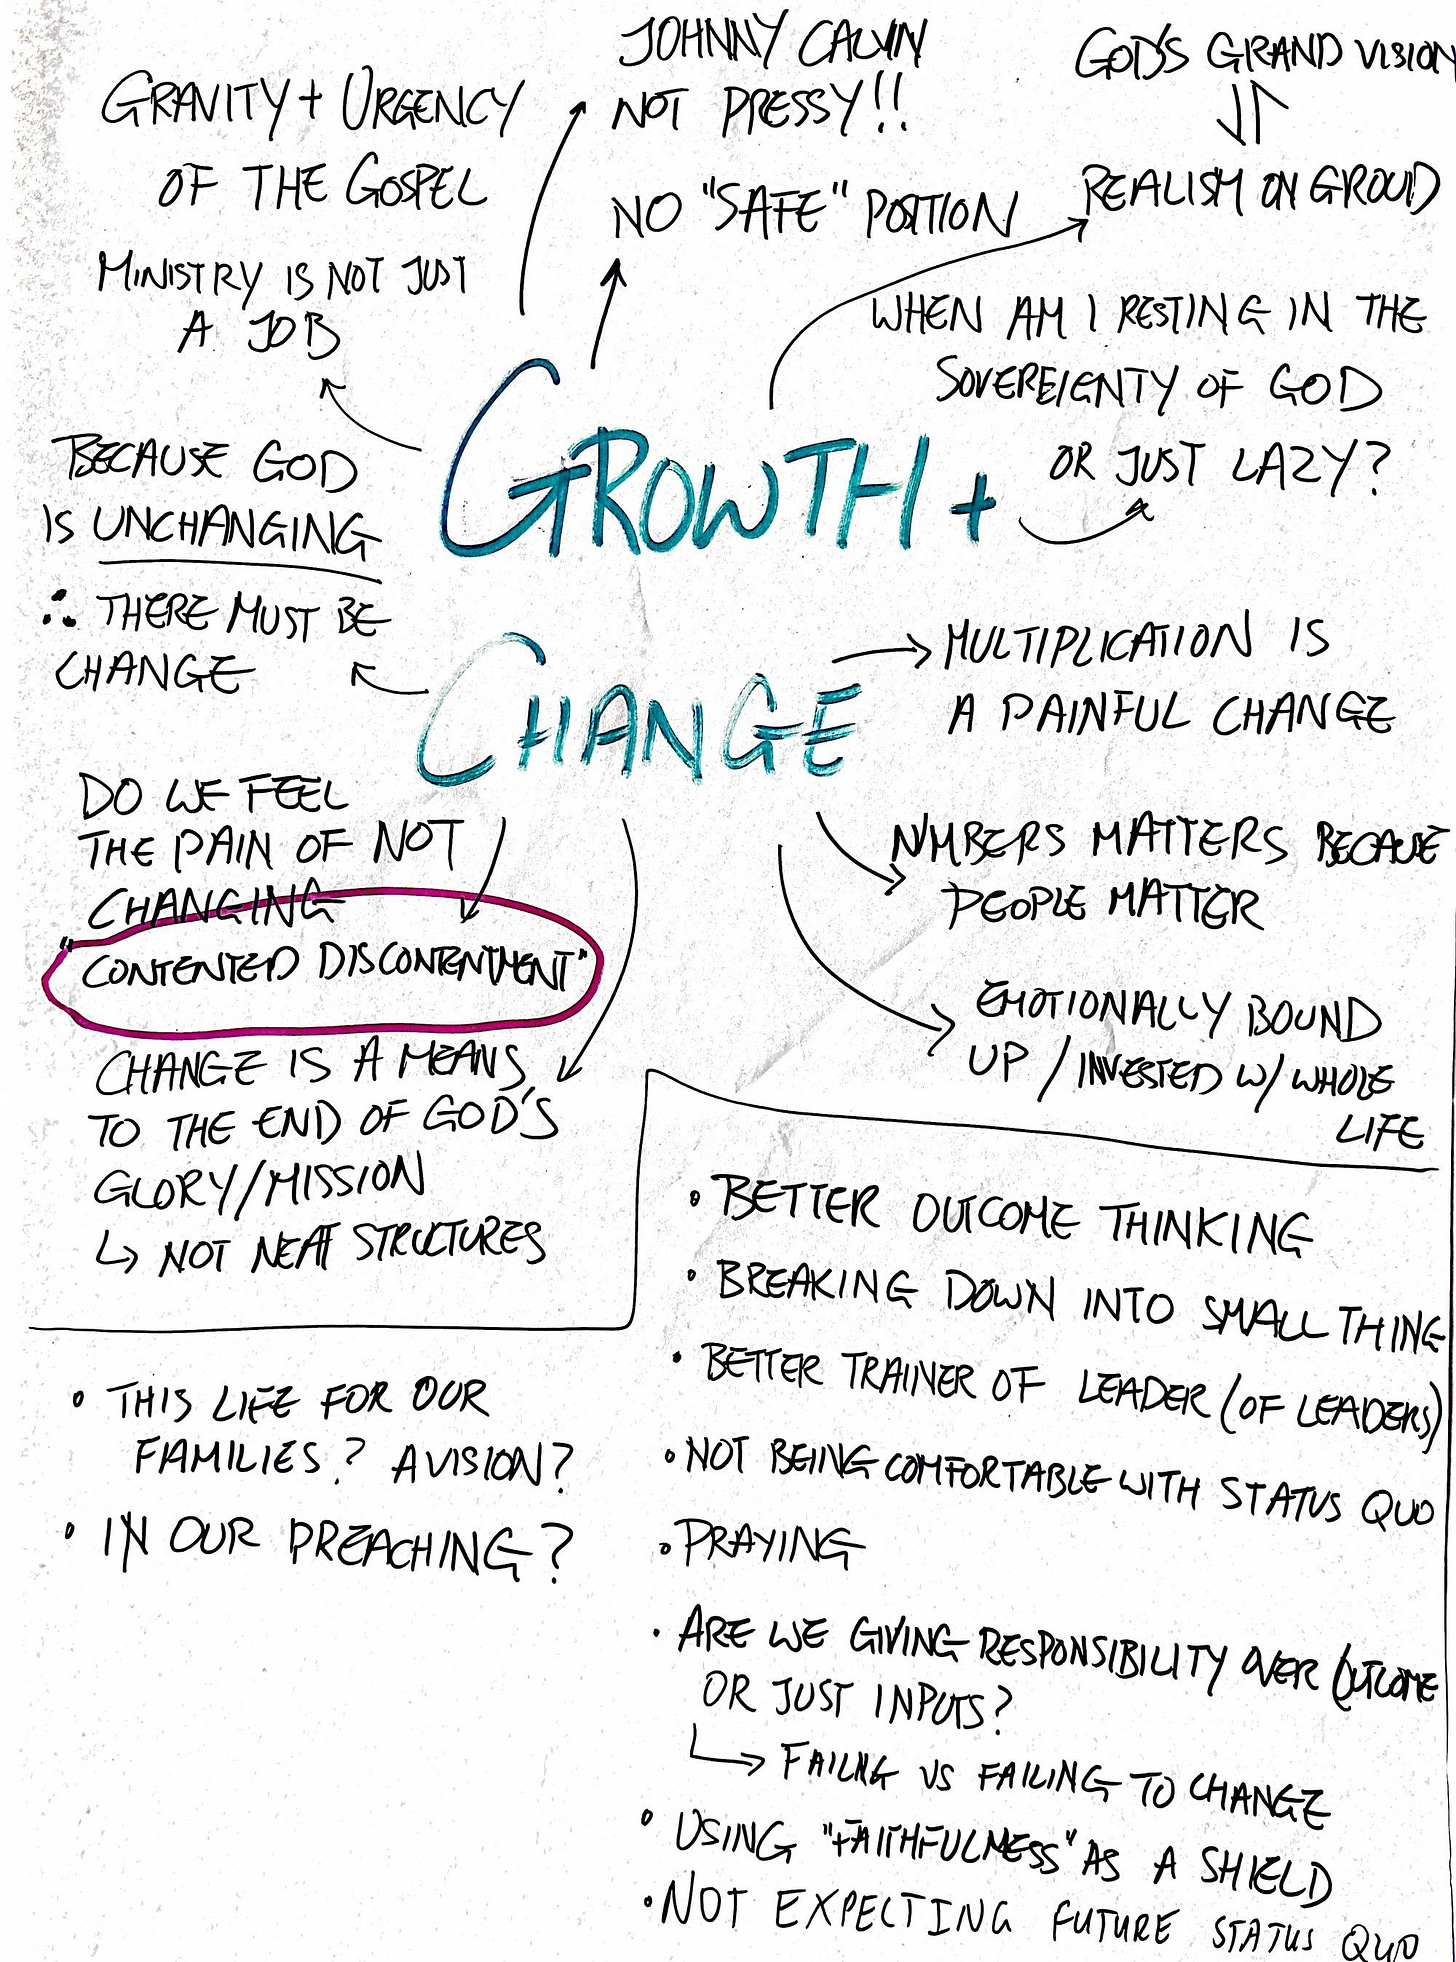 GRAVITY + URGENCY
OF THE GOSPEL
MINISTRY IS NOT JUST
A JOB
JOHNNY CALVIN
NOT PRESSY!!
NO "SAFE" POSITION
GOD'S GRAND VISION
REALISM ON GROUD
WHEN AM I RESTING IN THE
SOVEREIGNTY OF GOD
OR JUST LAZY?
BECAUSE GOD
IS UNCHANGING
∴ THERE MUST BE
CHANGE
GROWTH +
CHANGE
MULTIPLICATION IS
A PAINFUL CHANGE
NMBERS MATTERS BECAUE
PEOPLE MATTER
EMOTIONALLY BOUND
UP / INVESTED W/ WHOLE
LIFE
DO WE FEEL
THE PAIN OF NOT
CHANGING
"CONTENTED DISCONTENTMENT"
CHANGE IS A MEANS
TO THE END OF GOD'S
GLORY/MISSION
↳ NOT NEAT STRUCTURES
• THIS LIFE FOR OUR
FAMILIES? A VISION?
• IN OUR PREACHING?
• BETTER OUTCOME THINKING
• BREAKING DOWN INTO SMALL THING
• BETTER TRAINER OF LEADER (OF LEADERS)
• NOT BEING COMFORTABLE WITH STATUS QUO
• PRAYING
• ARE WE GIVING RESPONSIBILITY OVER OUTCOME
OR JUST INPUTS?
↳ FAILNG VS FAILING TO CHANGE
• USING "FAITHFULNESS" AS A SHIELD
• NOT EXPECTING FUTURE STATUS QUO